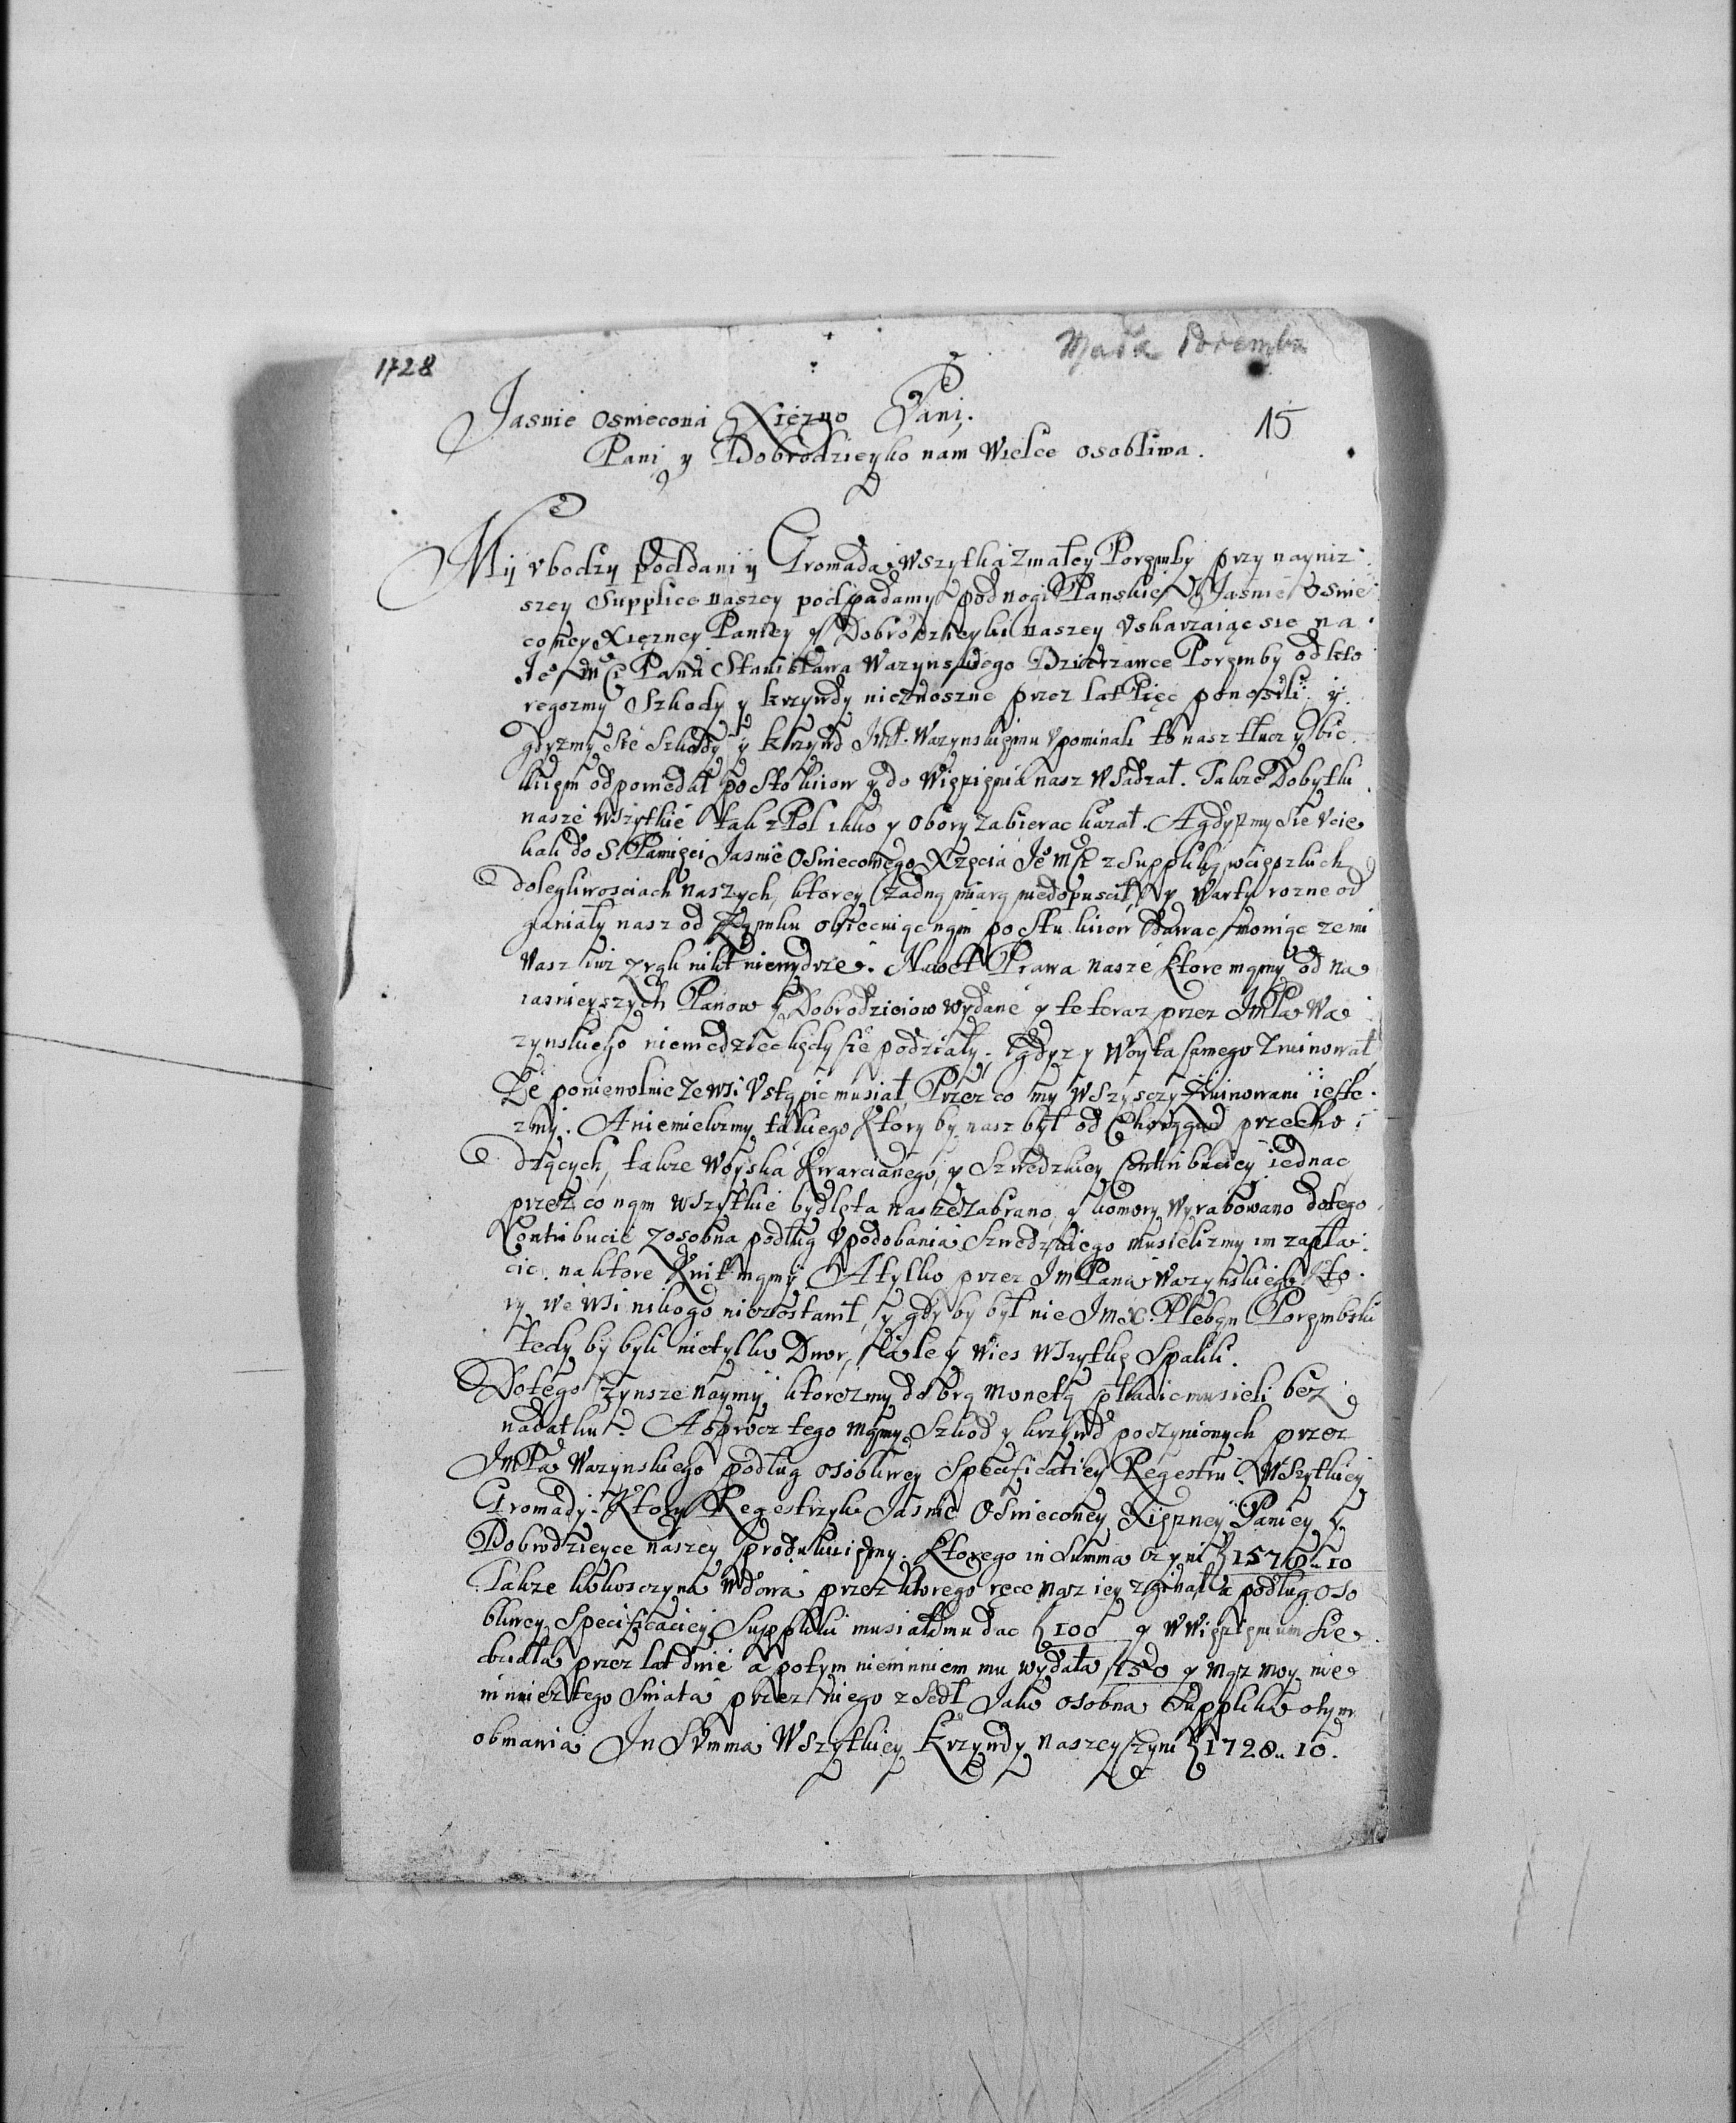 1728
Mała Poremba
15
Jasnie Oswiecona Xięzno Pani.
Pani y Dobrodzieyko nam Wielce osobliwa.
My vbodzy poddani y Gromada wszytka z małey Poręmby przy nayniz
szey Supplice naszey podpadamy pod nogi Panskie Jasnie Oswie
coney Xięzney Paniey y Dobrodzieyki naszey vskarzaiąc sie na
Je Mści Pana Stanisława Wazynskiego Dzierzawce Poręmby od kto
regozmy Szkody y krzywdy nieznoszne przez lat Pięc ponosili y
gdyzmy sie Szkody y krzywd JmP. Wazynskięmu vpominali to nasz tłucz y bic
kiięm odpowiedał po sto kiiow y do Więzięnia nasz wsadzał. Takze Dobytki
nasze wszytkie tak z Pol iako y obory zabierac kazał. A gdyzmy sie vcie
kali do S. Pamięci Jasnie Oswieconego Xzęcia Je Mści z Suppliką w cięszkich
dolegliwosciach naszych, ktorey zadną miarą niedopuscił, y Warty rozne od
ganiały nasz od Zamku obiecuiąc nąm po stu kiiow dawac mowiąc ze mi
Wasz iuz z rąk nikt niewydrze. Nawet Prawa nasze ktore mąmy od na
iasnieyszych Panow y Dobrodzieiow wydane y te teraz przez JmPa Wa
zynskiego niewiedziec kędy sie podziały. Gdyz y Woyta samego zruinował
Ze poniewolnie ze wsi Vstąpic musiał, Przez co my wszyscy zruinowani ieste
zmy. A niemielizmy takiego ktory by nasz był od Chorągwi przecho
dzących, takze Woyska Kwarcianego, y Szwedzkiey Contribuciey iednac
przez co nąm wszytkie bydlęta nasze zabrano y komory wyrabowano do tego
Contribucie z osobna podług vpodobania Szwedzkiego musielizmy im zapła
cic. na ktore Kwit mąmy. A tylko przez JmPana Wazynskiego kto
ry we wsi nikogo niezostawił, y gdy by był nie Jmx. Plebąn Porębski
tedy by byli nietylko Dwor, ale y wies wszytkę spalili.
Do tego Zynsze naymy, ktorezmy dobrą monetą płacic musieli bez
nadatku. A oprocz tego mąmy Szkod y krzywd poczynionych przez
JmPa Wazynskiego podług osobliwey Specificatiey Regestru wszytkiey
Gromady. Ktory Regestrzyk Jasnie Oswieconey Xięzney Paniey y
Dobrodzieyce naszey produkuięmy. Ktorego in Summa czyni 1578 10
Takze Kokosczyna wdowa przez ktorego ręce mąz iey zginął a podług oso
bliwey Specificaciey Suppliki musiała mu dac 100 y w więzięniu sie
działa przez lat dwie a potym niewinniem mu wydała 50 y mąz moy nie
winnie z tego swiata przez niego zsedł Jako osobna Supplika o tym
obmawia In Summa wszytkiey krzywdy naszey czyni 1728 10.